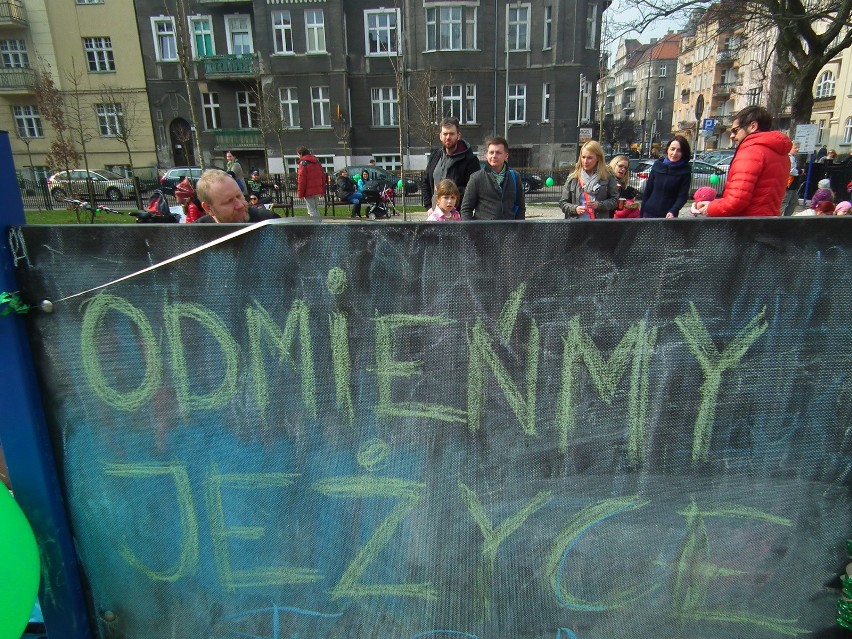 ODMIEŃMY
JEŻYCE